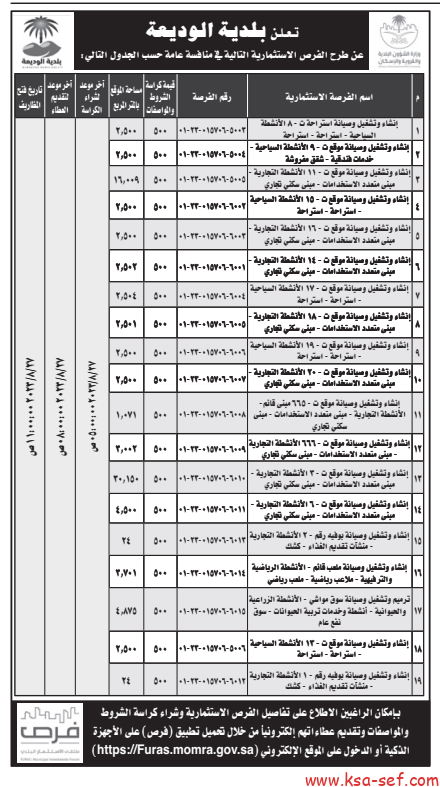 تعلن بلدية الوديعة
عن طرح الفرص الاستثمارية التالية في منافسة عامة حسب الجدول التالي:
وزارة الشؤون البلدية
والقروية والإسكان
بلدية الوديعة
م
اسم الفرصة الاستثمارية
رقم الفرصة
قيمة كراسة الشروط والمواصفات
مساحة الموقع بالمتر المربع
آخر موعد شراء الكراسة
آخر موعد لتقديم العطاء
تاريخ فتح المظاريف
١ إنشاء وتشغيل وصيانة استراحة ت - ٨ الأنشطة السياحية - استراحة - استراحة ٠١-٢٣-٠١٥٧٠٦-٥٠٠٣ ٥٠٠ ٢,٥٠٠
٢ إنشاء وتشغيل وصيانة موقع ت - ٩ الأنشطة السياحية - خدمات فندقية - شقق مفروشة ٠١-٢٣-٠١٥٧٠٦-٥٠٠٤ ٥٠٠ ٢,٥٠٠
٣ إنشاء وتشغيل وصيانة موقع ت - ١١ الأنشطة التجارية - مبنى متعدد الاستخدامات - مبنى سكني تجاري ٠١-٢٣-٠١٥٧٠٦-٥٠٠٥ ٥٠٠ ١٦,٠٠٩
٤ إنشاء وتشغيل وصيانة موقع ت - ١٥ الأنشطة السياحية - استراحة - استراحة ٠١-٢٣-٠١٥٧٠٦-٦٠٠٢ ٥٠٠ ٢,٥٠٠
٥ إنشاء وتشغيل وصيانة موقع ت - ١٦ الأنشطة التجارية - مبنى متعدد الاستخدامات - مبنى سكني تجاري ٠١-٢٣-٠١٥٧٠٦-٦٠٠٣ ٥٠٠ ٢,٥٠٠
٦ إنشاء وتشغيل وصيانة موقع ت - ١٤ الأنشطة التجارية - مبنى متعدد الاستخدامات - مبنى سكني تجاري ٠١-٢٣-٠١٥٧٠٦-٦٠٠١ ٥٠٠ ٢,٥٠٢
٧ إنشاء وتشغيل وصيانة موقع ت - ١٧ الأنشطة السياحية - استراحة - استراحة ٠١-٢٣-٠١٥٧٠٦-٦٠٠٤ ٥٠٠ ٢,٥٠٤
٨ إنشاء وتشغيل وصيانة موقع ت - ١٨ الأنشطة التجارية - مبنى متعدد الاستخدامات - مبنى سكني تجاري ٠١-٢٣-٠١٥٧٠٦-٦٠٠٥ ٥٠٠ ٢,٥٠١
٩ إنشاء وتشغيل وصيانة موقع ت - ١٩ الأنشطة السياحية - استراحة - استراحة ٠١-٢٣-٠١٥٧٠٦-٦٠٠٦ ٥٠٠ ٢,٥٠٠
١٠ إنشاء وتشغيل وصيانة موقع ت - ٢٠ الأنشطة التجارية - مبنى متعدد الاستخدامات - مبنى سكني تجاري ٠١-٢٣-٠١٥٧٠٦-٦٠٠٧ ٥٠٠ ٢,٥٠٠
١١ إنشاء وتشغيل وصيانة موقع ت - ٦٦٥ مبنى قائم - الأنشطة التجارية - مبنى متعدد الاستخدامات - مبنى سكني تجاري ٠١-٢٣-٠١٥٧٠٦-٦٠٠٨ ٥٠٠ ١,٠٧١
١٢ إنشاء وتشغيل وصيانة موقع ت - ٦٦٦ الأنشطة التجارية - مبنى متعدد الاستخدامات - مبنى سكني تجاري ٠١-٢٣-٠١٥٧٠٦-٦٠٠٩ ٥٠٠ ٣,٠٠٢
١٣ إنشاء وتشغيل وصيانة موقع ت - ٣ الأنشطة التجارية - مبنى متعدد الاستخدامات - مبنى سكني تجاري ٠١-٢٣-٠١٥٧٠٦-٦٠١٠ ٥٠٠ ٣٠,١٥٠
١٤ إنشاء وتشغيل وصيانة موقع ت - ٦ الأنشطة التجارية - مبنى متعدد الاستخدامات - مبنى سكني تجاري ٠١-٢٣-٠١٥٧٠٦-٦٠١١ ٥٠٠ ٤,٥٠٠
١٥ إنشاء وتشغيل وصيانة بوفيه رقم - ٢ الأنشطة التجارية - منشآت تقديم الغذاء - كشك ٠١-٢٣-٠١٥٧٠٦-٦٠١٣ ٥٠٠ ٢٤
١٦ إنشاء وتشغيل وصيانة ملعب قائم - الأنشطة الرياضية والترفيهية - ملاعب رياضية - ملعب رياضي ٠١-٢٣-٠١٥٧٠٦-٦٠١٤ ٥٠٠ ٣,٧٠١
١٧ ترميم وتشغيل وصيانة سوق مواشي - الأنشطة الزراعية والحيوانية - أنشطة وخدمات تربية الحيوانات - سوق نفع عام ٠١-٢٣-٠١٥٧٠٦-٦٠١٥ ٥٠٠ ٤,٨٧٥
١٨ إنشاء وتشغيل وصيانة موقع ت - ١٣ الأنشطة السياحية - استراحة - استراحة ٠١-٢٣-٠١٥٧٠٦-٥٠٠٦ ٥٠٠ ٢,٥٠٠
١٩ إنشاء وتشغيل وصيانة بوفيه رقم - ١ الأنشطة التجارية - منشآت تقديم الغذاء - كشك ٠١-٢٣-٠١٥٧٠٦-٦٠١٢ ٥٠٠ ٢٤
٢٠٢٣/٨/٢٧ ٠٥:٠٠:٠٠ ص
٢٠٢٣/٨/٢٧ ٠٨:٠٠:٠٠ ص
٢٠٢٣/٨/٢٧ ١١:٠٠:٠٠ ص
بإمكان الراغبين الاطلاع على تفاصيل الفرص الاستثمارية وشراء كراسة الشروط
والمواصفات وتقديم عطاءاتهم إلكترونياً من خلال تحميل تطبيق (فرص) على الأجهزة
الذكية أو الدخول على الموقع الإلكتروني (https://Furas.momra.gov.sa)
فرص
www.ksa-sef.com